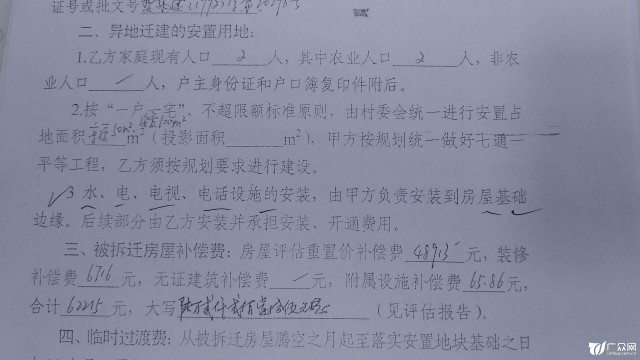 证号或批文号
二、异地迁建的安置用地：
1.乙方家庭现有人口 2 人，其中农业人口 2 人，非农
业人口 / 人，户主身份证和户口簿复印件附后。
2.按“一户一宅”、不超限额标准原则，由村委会统一进行安置占
地面积 m²（投影面积 m²），甲方按规划统一做好七通一
平等工程，乙方须按规划要求进行建设。
3 水、电、电视、电话设施的安装，由甲方负责安装到房屋基础
边缘。后续部分由乙方安装并承担安装、开通费用。
三、被拆迁房屋补偿费：房屋评估重置价补偿费 48913 元，装修
补偿费 6716 元，无证建筑补偿费 / 元，附属设施补偿费 6586 元，
合计 62215 元，大写 陆万贰仟贰佰壹拾伍元 （见评估报告）。
四、临时过渡费：从被拆迁房屋腾空之月起至落实安置地块基础之日
广众网